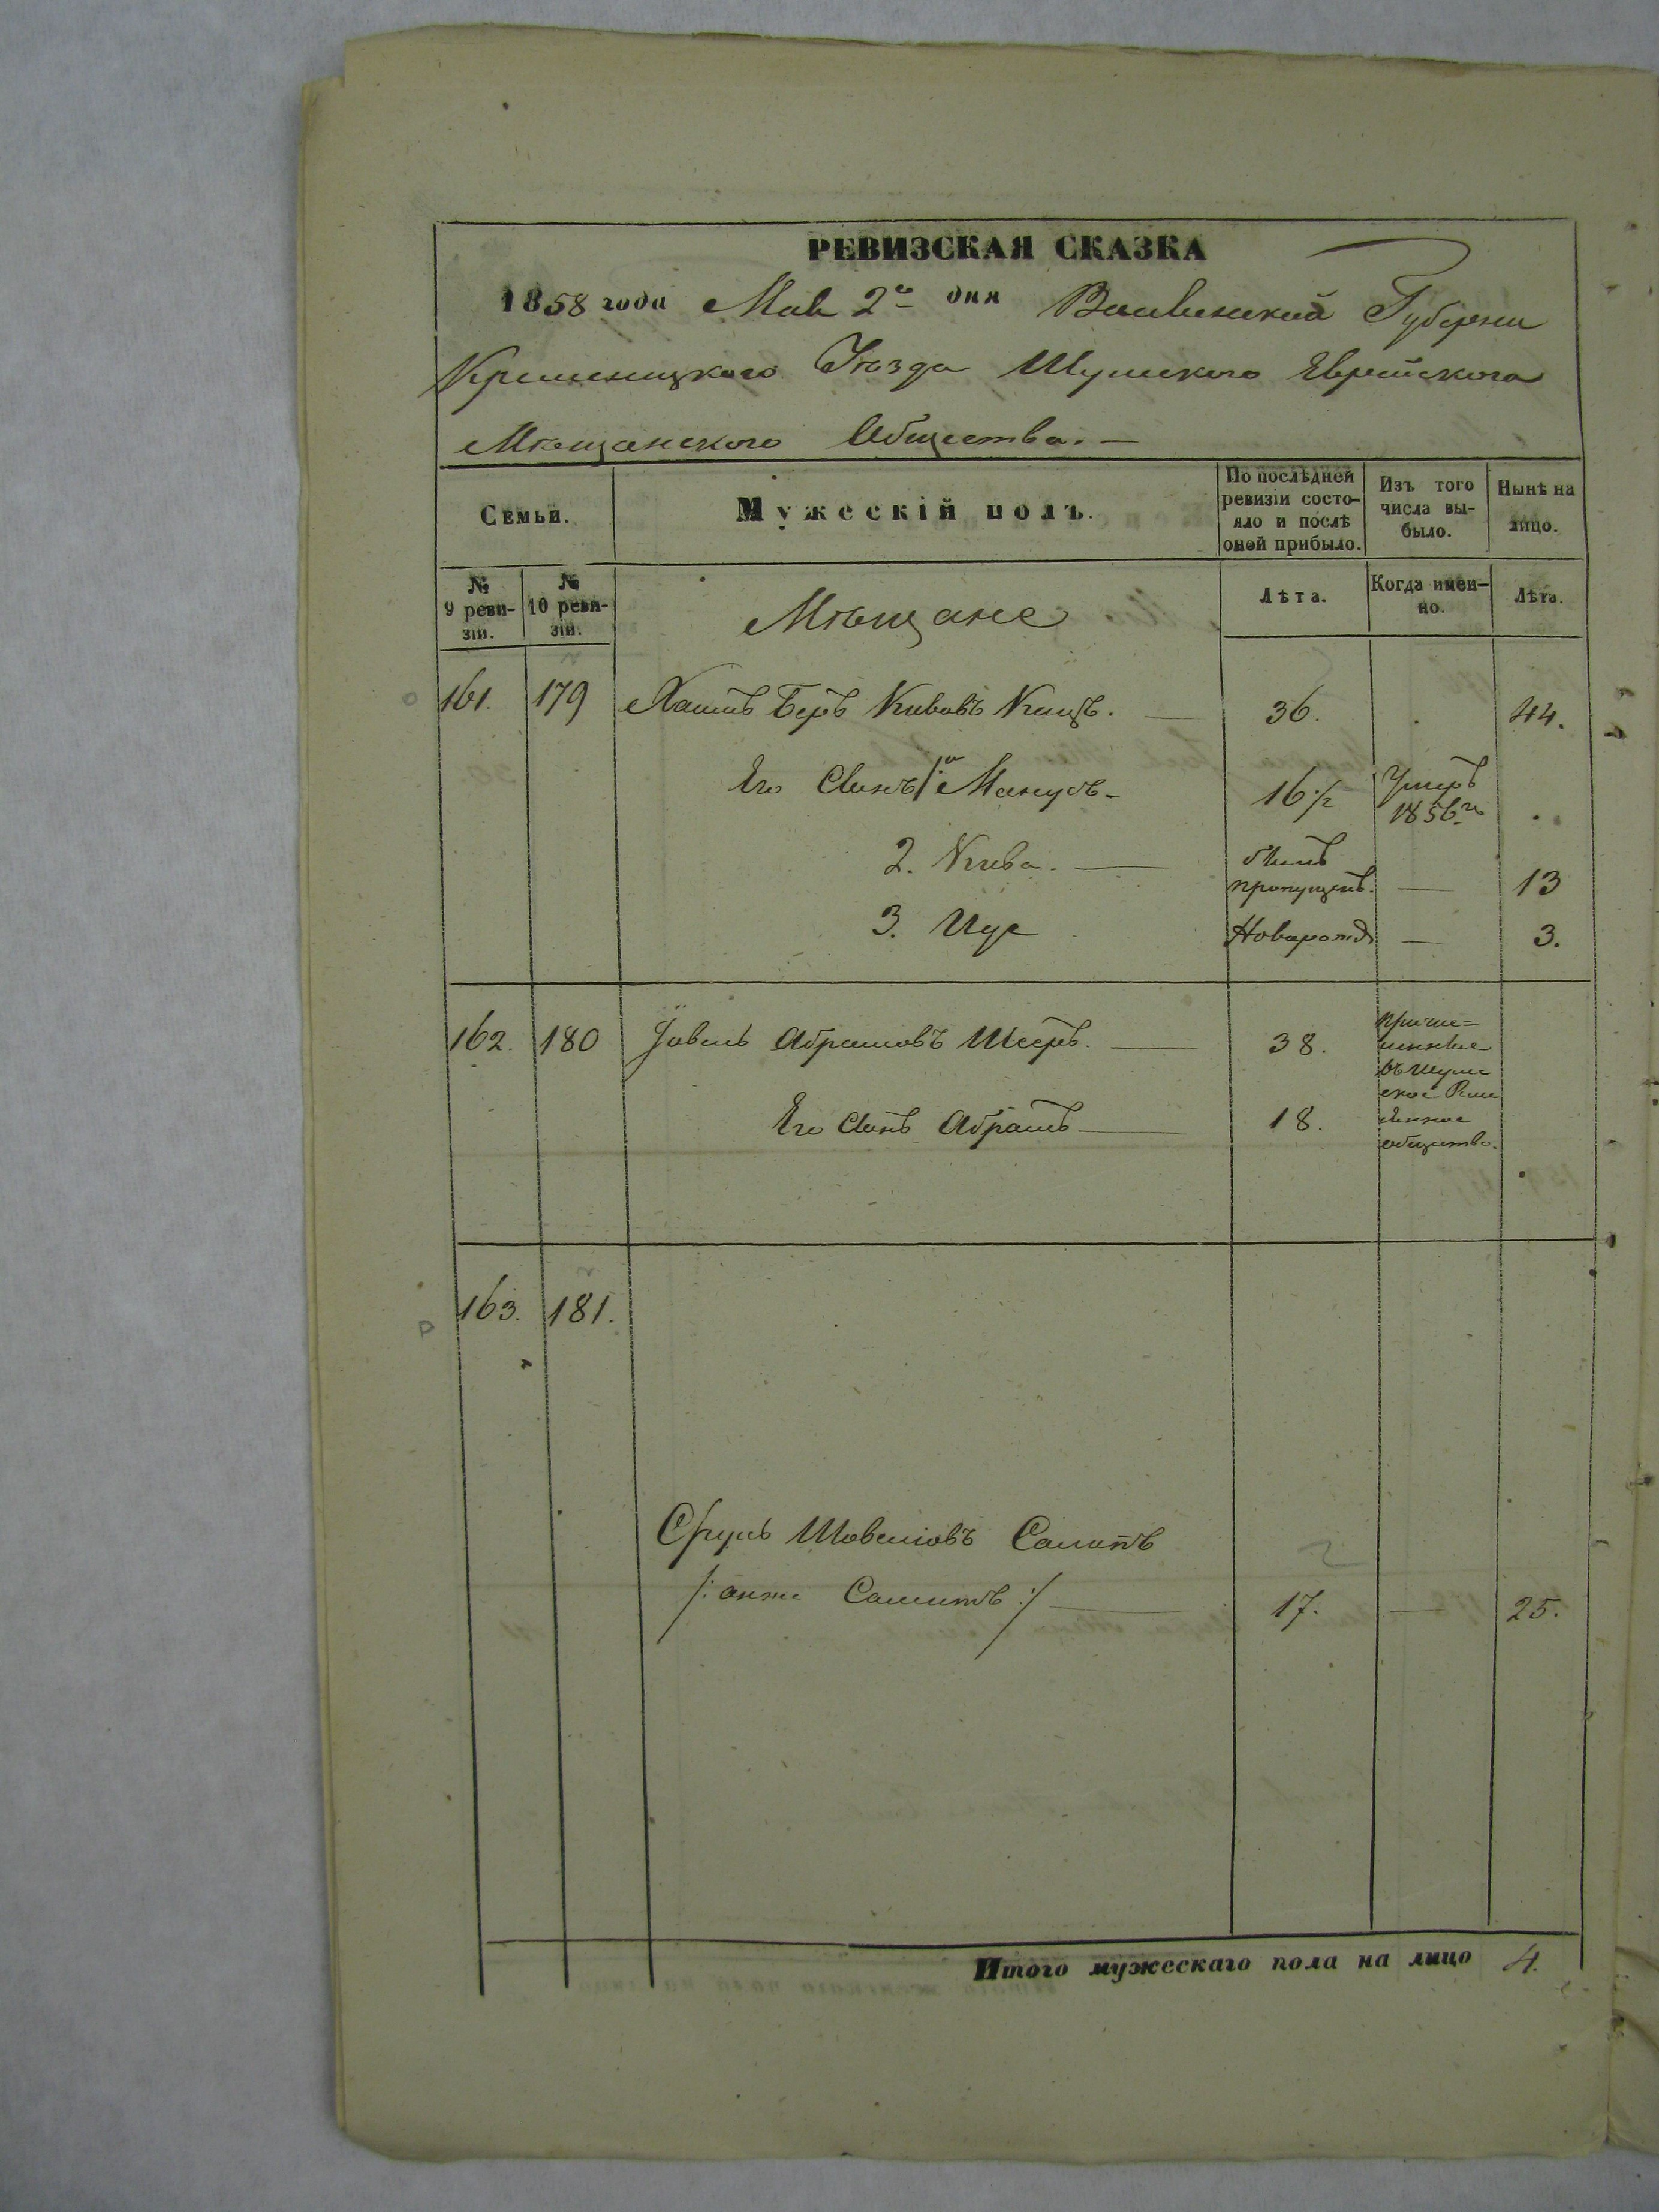 РЕВИЗСКАЯ СКАЗКА
1858 года Мая 2го дня Волынской Губерни
Кременецкого Уѣзда Шумского Еврейского
Мѣщанского Общества.—
Семьи.
Мужескій полъ.
По послѣдней ревизіи состо-
яло и послѣ
оной прибыло.
Изъ того
числа вы-
было.
Нынѣ на
лицо.
№
9 реви-
зіи.
№
10 реви-
зіи.
Мѣщане
Лѣта.
Когда имен-
но.
Лѣта.
161. 179 Хаимъ Беръ Кивовъ Кацъ. — 36. 44.
Его Сынъ 1й Манусъ - 16 1/2 Умеръ
1856го
2. Кива. — былъ
пропущенъ. — 13
3. Иус Новорожд — 3.
162. 180 Іовель Абрамовъ Шееръ. — 38.
Его Сынъ Абрамъ — 18.
общество.
163. 181.
Сруль Шовелiовъ
17. — 25.
Итого мужескаго пола на лицо 4.